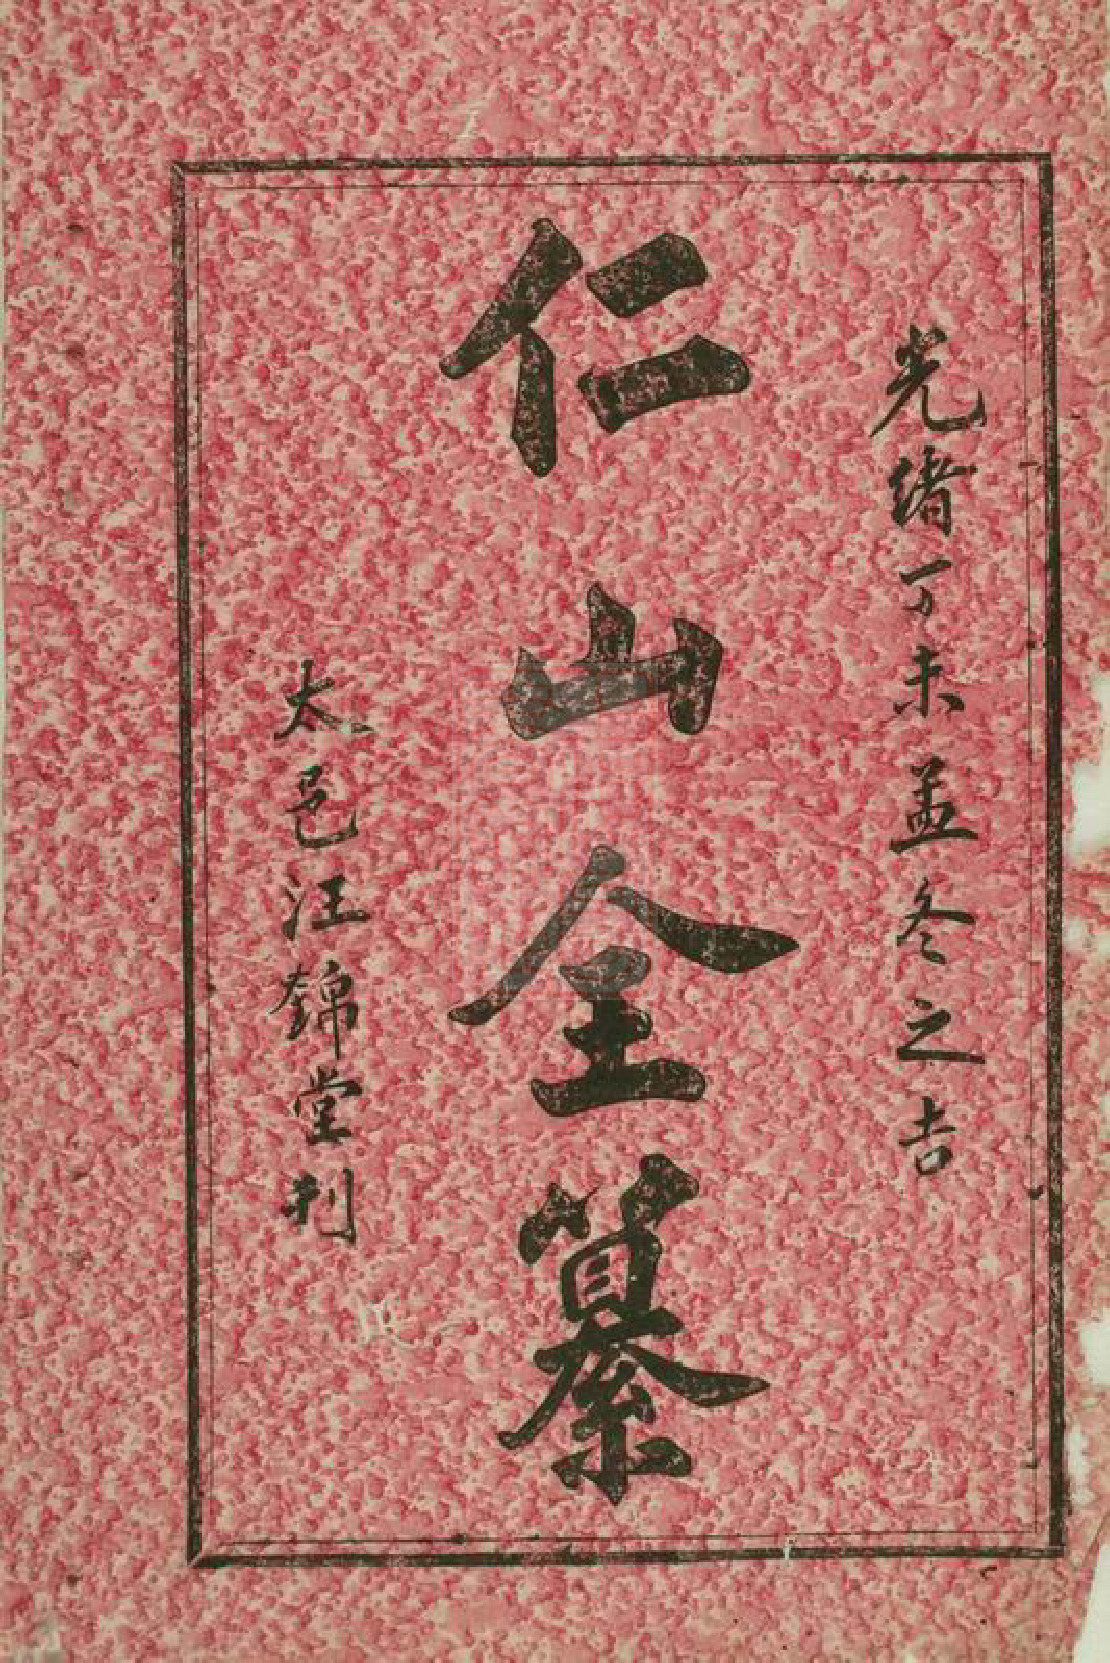 光緒丁未孟冬之吉
仁山全纂
太邑汪錦堂刊